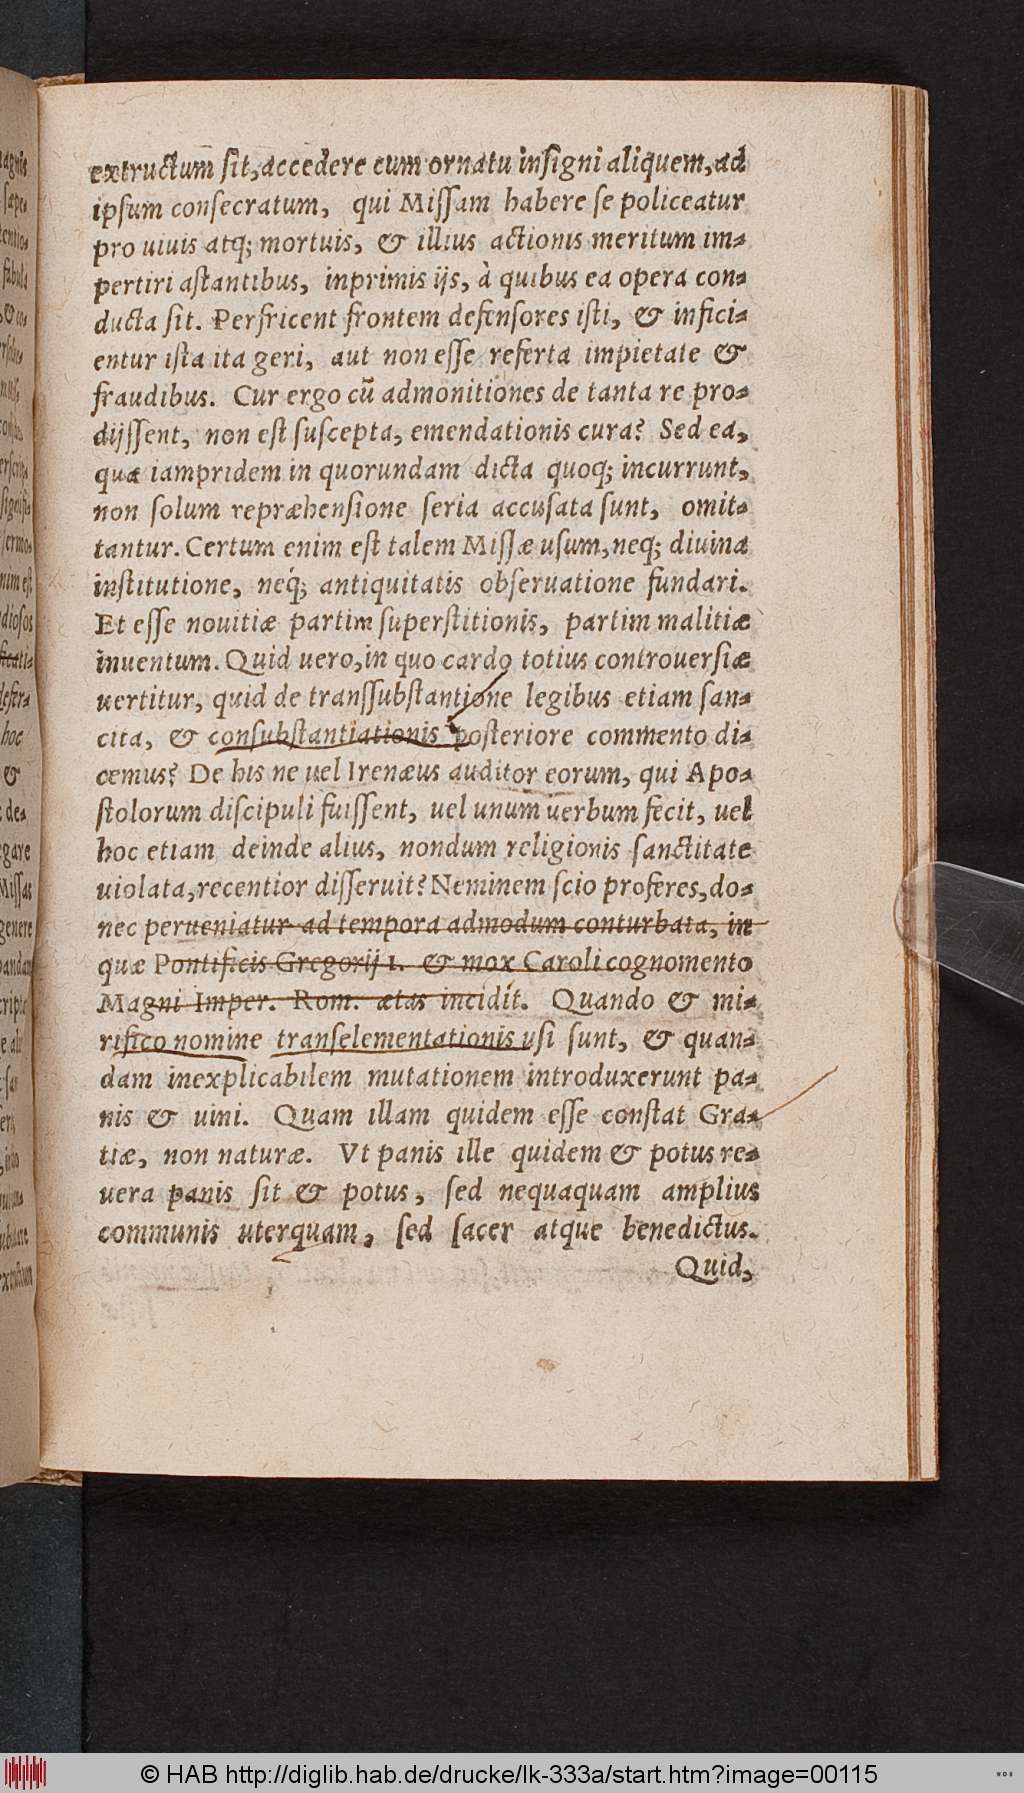 extructum sit, accedere cum ornatu insigni aliquem, ad
ipsum consecratum, qui Missam habere se policeatur
pro uiuis atq; mortuis, & illius actionis meritum im-
pertiri astantibus, inprimis ijs, à quibus ea opera con-
ducta sit. Perfricent frontem defensores isti, & infici-
entur ista ita geri, aut non esse referta impietate &
fraudibus. Cur ergo cũ admonitiones de tanta re pro-
dijssent, non est suscepta, emendationis cura? Sed ea,
quæ iampridem in quorundam dicta quoq; incurrunt,
non solum repræhensione seria accusata sunt, omit-
tantur. Certum enim est talem Missæ usum, neq; diuina
institutione, neq́; antiquitatis obseruatione fundari.
Et esse nouitiæ partim superstitionis, partim malitiæ
inuentum. Quid uero, in quo cardo totius controuersiæ
uertitur, quid de transsubstantione legibus etiam san-
cita, & consubstantiationis posteriore commento di-
cemus? De his ne uel Irenæus auditor eorum, qui Apo-
stolorum discipuli fuissent, uel unum uerbum fecit, uel
hoc etiam deinde alius, nondum religionis sanctitate
uiolata, recentior disseruit? Neminem scio proferes, do-
nec perueniatur ad tempora admodum conturbata, in
quæ Pontificis Gregorij 1. & mox Caroli cognomento
Magni Imper. Rom. ætas incidít. Quando & mi-
rifico nomine transelementationis usi sunt, & quan-
dam inexplicabilem mutationem introduxerunt pa-
nis & uini. Quam illam quidem esse constat Gra-
tiæ, non naturæ. Vt panis ille quidem & potus re-
uera panis sit & potus, sed nequaquam amplius
communis uterquam, sed sacer atque benedictus.
Quid,
© HAB http://diglib.hab.de/drucke/lk-333a/start.htm?image=00115